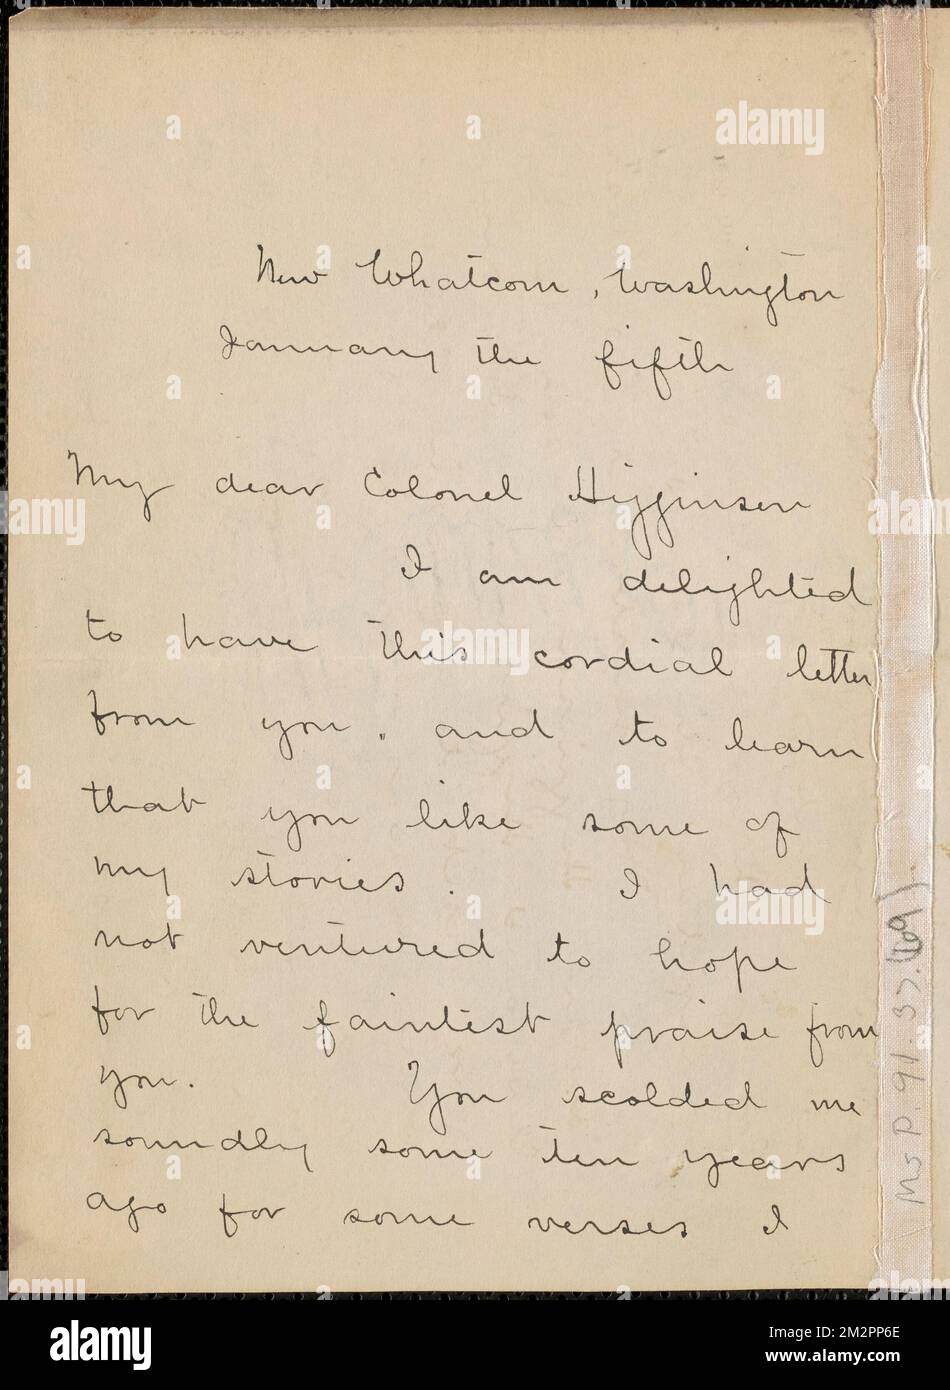 New Whatcom, Washington
January the fifth
My dear Colonel Higginson
I am delighted
to have this cordial letter
from you, and to learn
that you like some of
my stories. I had
not ventured to hope
for the faintest praise from
you. You scolded me
soundly some ten years
ago for some verses I
Ms P. 91. 37. (109).
alamy
a
alamy
Image ID: 2M2PP6E
www.alamy.com